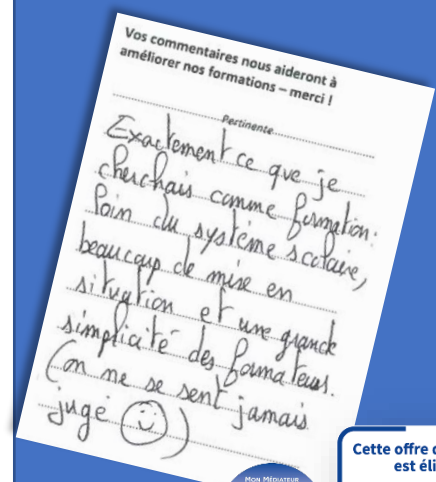 Vos commentaires nous aideront à
améliorer nos formations – merci !
Pertinente
Exactement ce que je
cherchais comme formation.
Loin du système scolaire,
beaucoup de mise en
situation et une grande
simplicité des formateurs.
(on ne se sent jamais
jugé ☺)
MON MÉDIATEUR
Cette offre
est éli